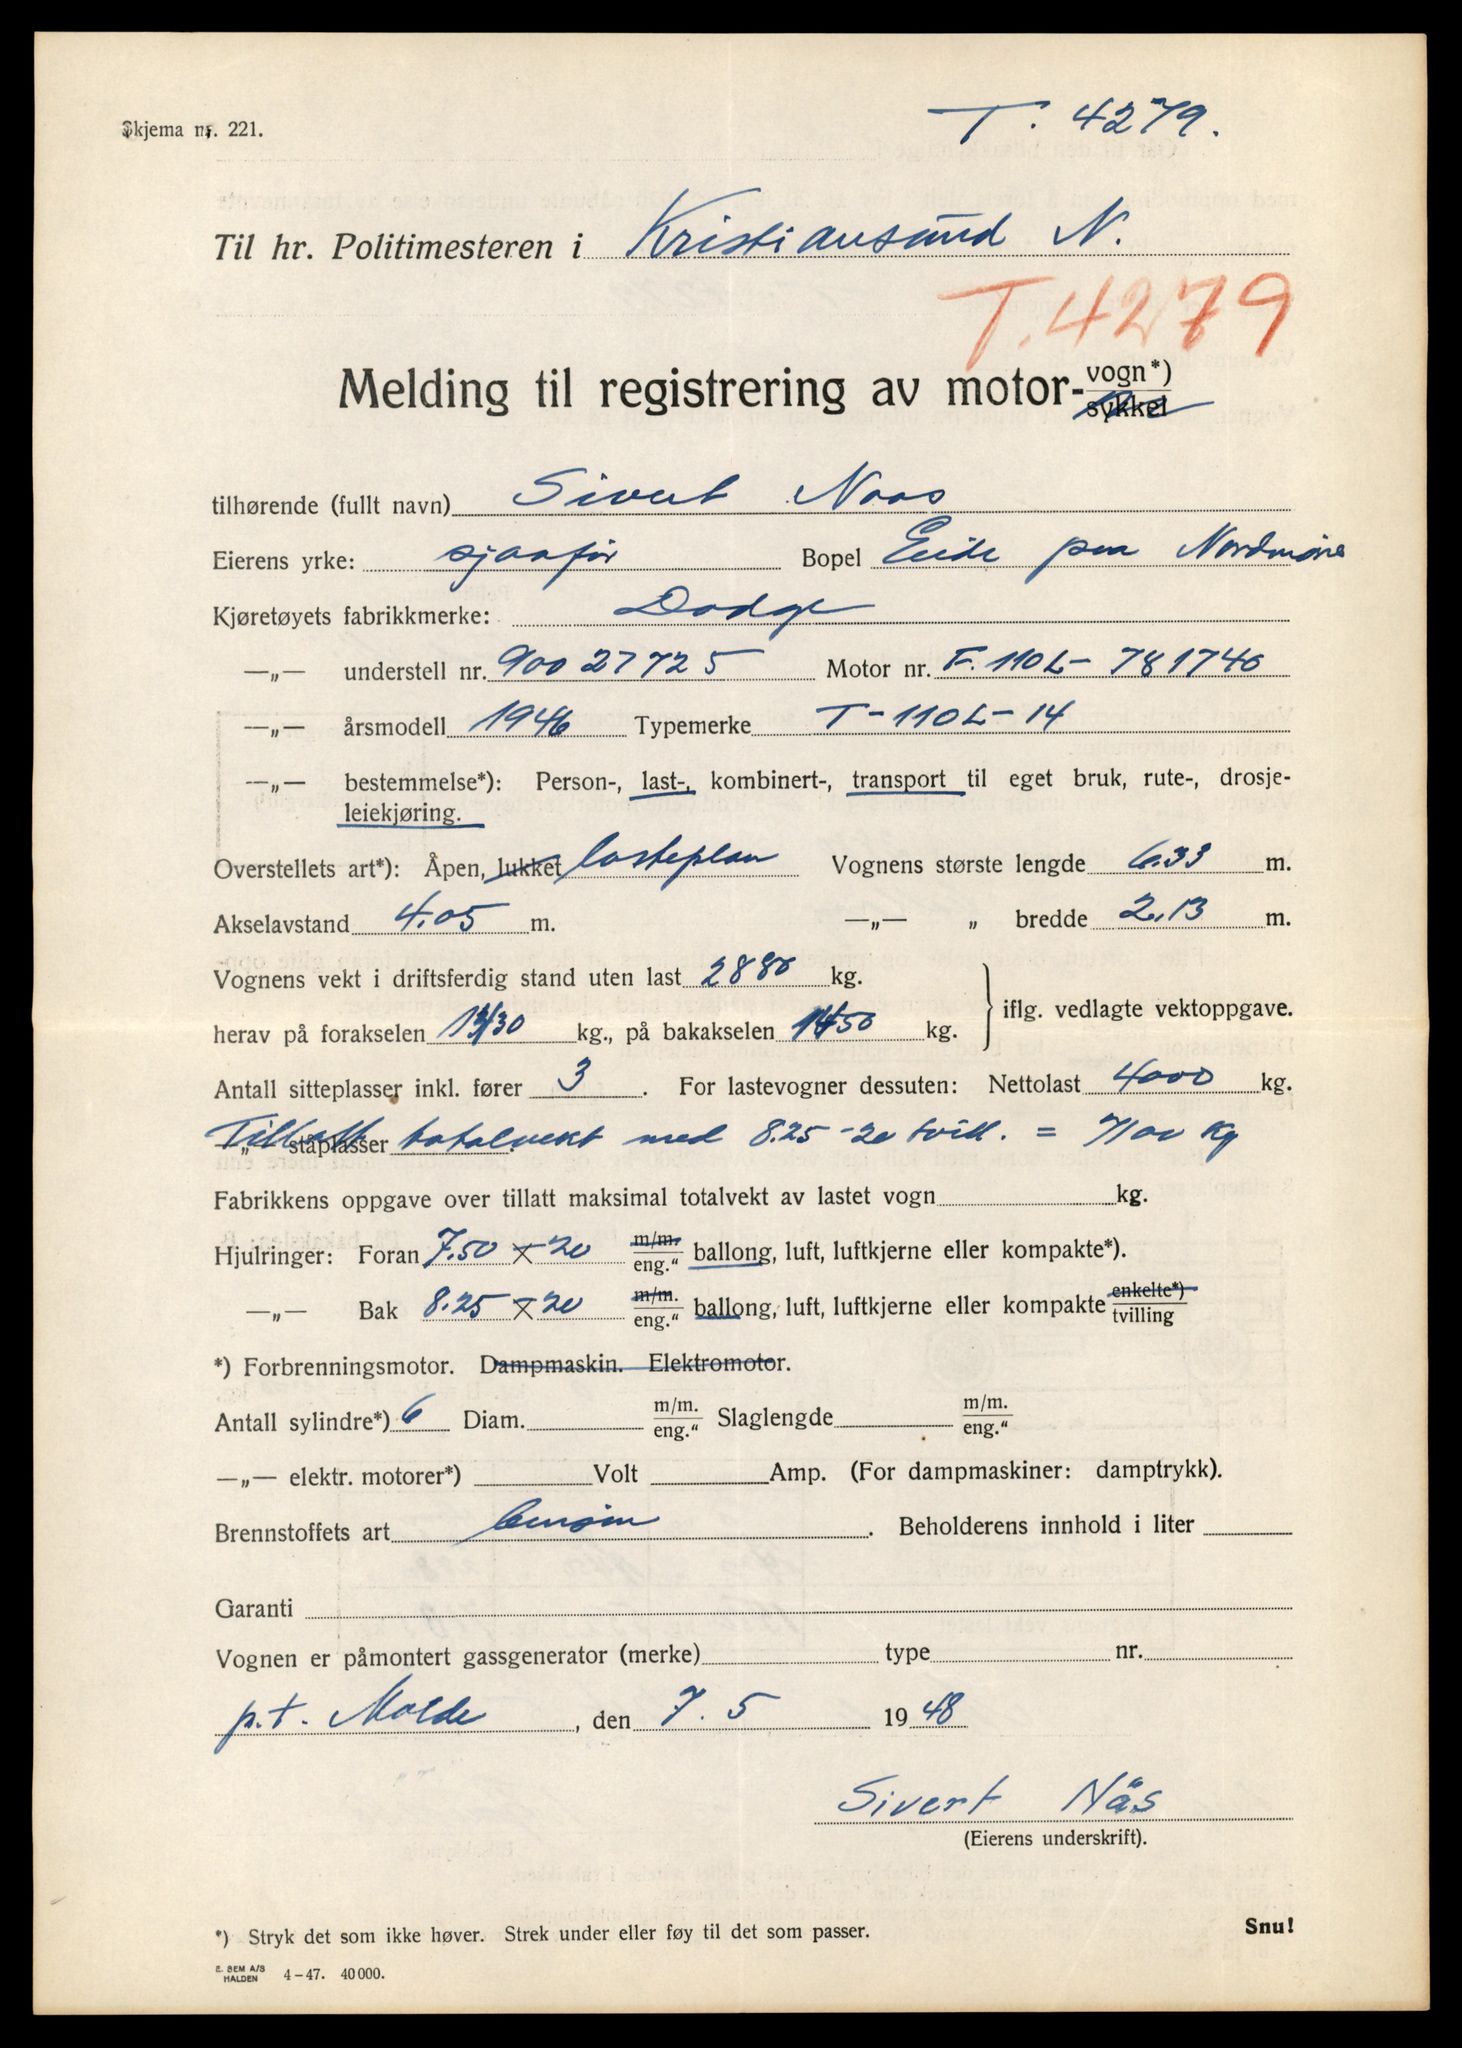 Skjema nr. 221.
T. 4279.
Til hr. Politimesteren i Kristiansund N.
T. 4279
Melding til registrering av motor-vogn*)
sykkel
tilhørende (fullt navn) Sivert Naas
Eierens yrke: sjaafør Bopel Eide paa Nordmøre
Kjøretøyets fabrikkmerke: Dodge
—„— understell nr. 90027725 Motor nr. F. 110L-781740
—„— årsmodell 1946 Typemerke T-110L-14
—„— bestemmelse*): Person-, last-, kombinert-, transport til eget bruk, rute-, drosje-
leiekjøring.
Overstellets art*): Åpen, lukket lasteplan Vognens største lengde 6.33 m.
Akselavstand 4.05 m. —„— „ bredde 2.13 m.
Vognens vekt i driftsferdig stand uten last 2880 kg.
herav på forakselen 1430 kg., på bakakselen 1450 kg. iflg. vedlagte vektoppgave.
Antall sitteplasser inkl. fører 3. For lastevogner dessuten: Nettolast 4000 kg.
„ ståplasser Tillatt totalvekt med 8.25-20 tvill. = 7100 kg
Fabrikkens oppgave over tillatt maksimal totalvekt av lastet vogn kg.
Hjulringer: Foran 7.50 × 20 m/m. eng.“ ballong, luft, luftkjerne eller kompakte*).
—„— Bak 8.25 × 20 m/m. eng.“ ballong, luft, luftkjerne eller kompakte enkelte*) tvilling
*) Forbrenningsmotor. Dampmaskin. Elektromotor.
Antall sylindre*) 6 Diam. m/m. eng.“ Slaglengde m/m. eng.“
—„— elektr. motorer*) Volt Amp. (For dampmaskiner: damptrykk).
Brennstoffets art bensin. Beholderens innhold i liter
Garanti
Vognen er påmontert gassgenerator (merke) type nr.
p.t. Molde, den 7. 5 1948
Sivert Näs
(Eierens underskrift).
*) Stryk det som ikke høver. Strek under eller føy til det som passer.
Snu!
E. SEM A/S
HALDEN 4–47. 40 000.